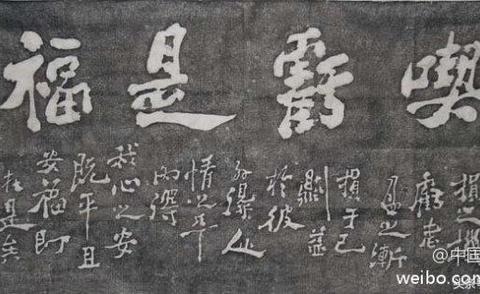 喫虧是福
損之機
虧者
盈之漸
損于己
則益
於彼
外得人
情之平
內得
我心之安
既平且
安福即
在是矣
@中国
weibo.com
头条